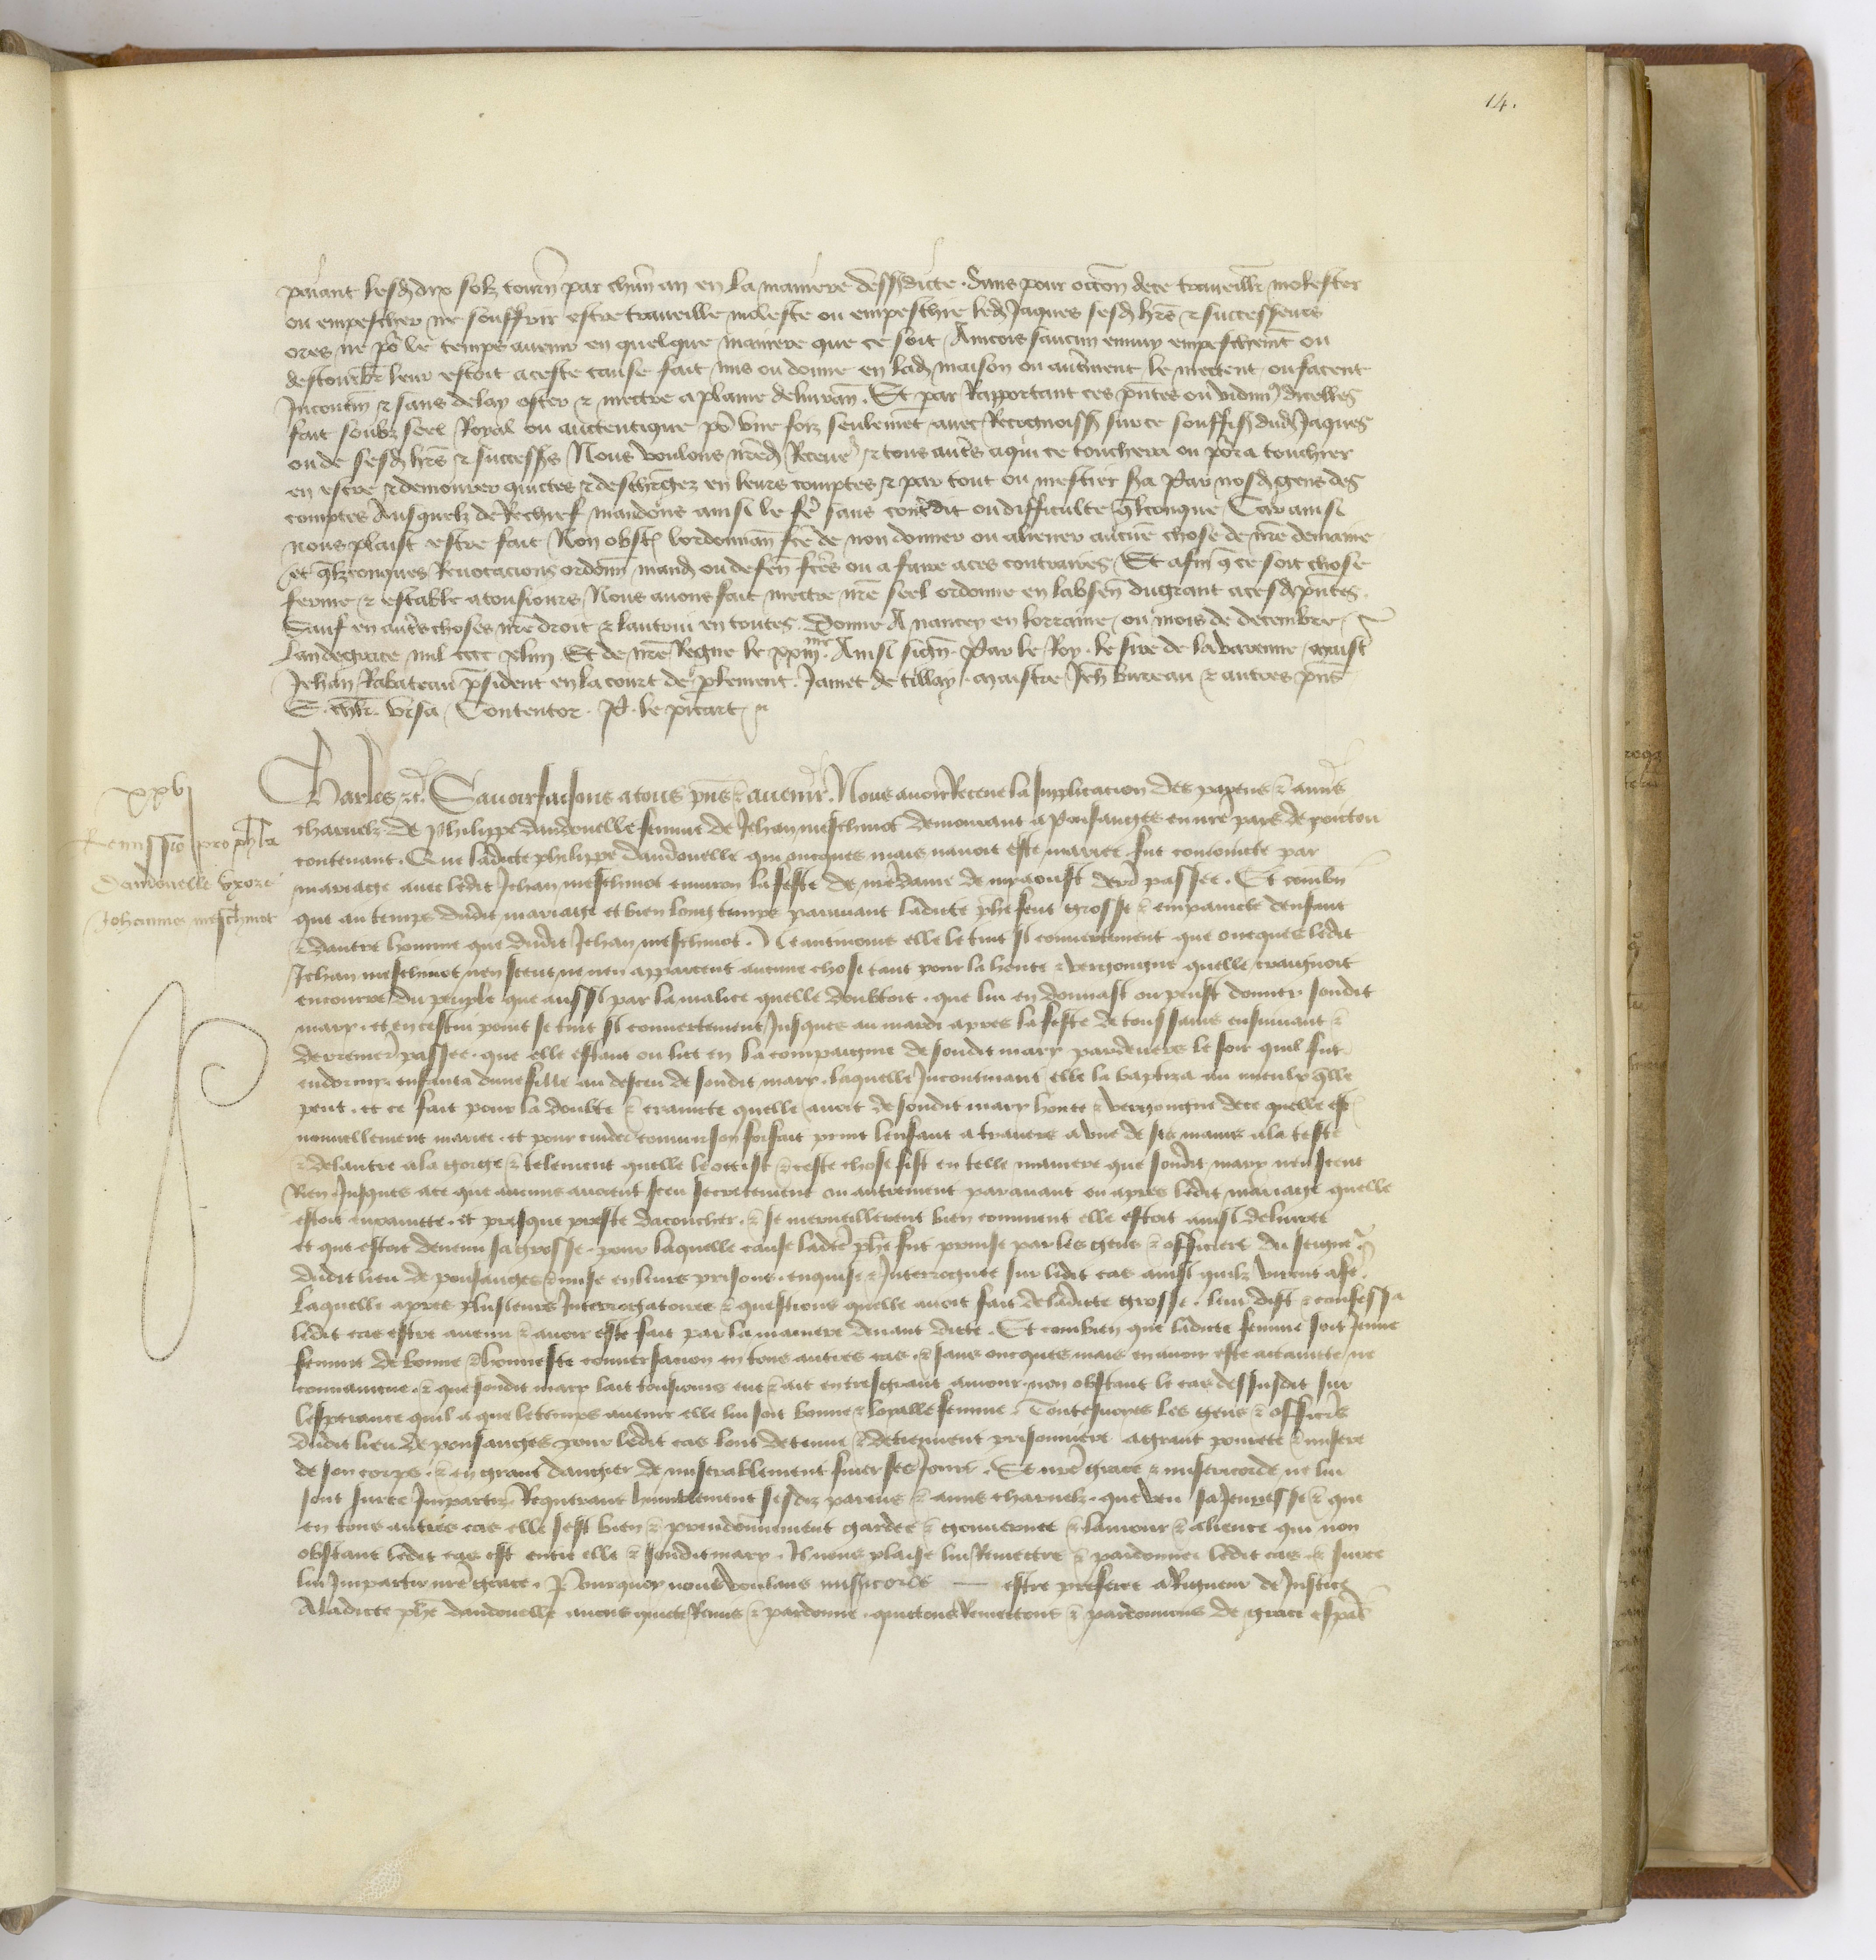 14.
paiant lesd dix solz tourn par chun an en la maniere dessusdicte. Sans pour occon dece traveillr molester
ou empescher ne souffrir estre traveille moleste ou empeschie led Jaques sesd hrs & successeurs
ores ne pr le temps avenir en quelque maniere que ce soit Aincois saucun ennuy empeschemt ou
destourbr leur estoit aceste cause fait mis ou donne en lad maison ou autrement le mectent ou facent
Incontin & sans delay oster & mectre a plaine delivran. Et par Rapportant ces pntes ou vidim dicelles
fait soubz seel Royal ou auctentique pr une foiz seulemet avec Recognoiss surce souffis dud Jaques
ou de sesd hrs & success Nous voulons nred Receur & tous autrs aqui ce touchera ou porra touchier
en estre & demourer quictes & deschrgez en leurs comptes & par tout ou mestier sra Par nosd gens des
comptes Ausquelz de Rechief mandons ainsi le fr sans contredit ou difficulte qlconque Car ainsi
nous plaist estre fait Non obst lordonnan fce de non donner ou aliener aucune chose de nre demaine
et qlzconques Revocacions ordonn mand ou defen fces ou a faire aces contraires Et afin q ce soit chose
ferme & estable atousiours Nous avons fait mectre nre seel ordonne en labsen du grant acesd pntes.
Sauf en autrs choses nre droit & lautrui en toutes. Donne A nancey en lorraine ou mois de decembre
Lan de grace mil cccc xliiij Et de nre Regne le xxiijme. Ainsi sign Par le Roy. le sire de la varenne maistr
Jehan Rabateau psident en la court de plement. Jamet de tillay. maistre Jeh bureau & autres pns
Contentor. P. le picart
Charles &c. Savoir faisons atous pns & avenir. Nous avoir Receue la supplicacion des parens & amis
charnelz de Philippe dandouelle femme de Jehan meschinot demourant a Pousauges en nre pays de poictou
contenant. Que ladicte philippe dandouelle qui oncques mais navoit este mariee fut conioincte par
mariage avec ledit Jehan meschinot environ la feste de nre dame de myaoust derr passee. Et combn
que au temps dudit mariage et bien long temps paravant ladicte phe feust grosse & empraincte denfant
& dautre homme que dudit Jehan meschinot. Neantmoins elle le tint si couvertement que oncques ledit
Jehan meschinot nen sceut ne nen apparceut aucune chose tant pour la honte & vergongne quelle craignoit
encourre du peuple que aussi par la malice quelle doubtoit. que lui en donnast ou peust donner sondit
mary. et en cestui point se tint si couvertement Jusques au mardi apres la feste de toussains ensuivant &
derrenier passee. que elle estant ou lict en la compaignie de sondit mary pardevers le soir quil fut
endormy enfanta dune fille au desceu de sondit mary. laquelle Incontinant elle la baptiza au mieulx qlle
peut. et ce fait pour la doubte & craincte quelle avoit de sondit mary honte & vergongne dece quelle est
nouvellement mariee. et pour cuider couvrir son forfait print lenfant a travers a une de ses mains a la teste
& de lautre a la gorge & telement quelle locist & ceste chose fist en telle maniere que sondit mary nen sceut
Rien Jusques ace que aucuns avoient sceu secretement ou autrement paravant ou apres ledit mariage quelle
estoit encaintte. et presque preste dacoucher. & se merveillerent bien comment elle estoit ainsi delivree
et que estoit devenu sa grosse. pour laquelle cause ladte phe fut prinse par les gens & officiers du seigner
dudit lieu de pousauges & mise en leurs prisons. enquise & Interroguee sur ledit cas ainsi quilz virent afe.
Laquelle apres plusieurs Interrogatoires & questions quelle avoit fait de ladicte grosse. leur dist & confessa
ledit cas estre avenu & avoir este fait par la maniere devant dicte. Et combien que ladicte femme soit Jeune
femme de bonne & honneste conversacion en tous autres cas. & sans oncques mais en avoir este actaintte ne
convaincue. & que sondit mary lait tousiours eue & ait en tresgrant amour non obstant le cas dessusdit sur
lesperance quil a que le temps avenir elle lui soit bonne & loyalle femme. Toutesvoyes les gens & officrs
dudit lieu de pousauges pour ledit cas lont detenue & detiennent prisonniere agrant povrete & misere
de son corps. & en grant dangier de miserablement finer ses Jours. Se nre grace & misericorde ne lui
sont surce Imparties. Requerant humblement sesdiz parens & amis charnelz. que veu sa Jeunesse & que
en tous autres cas elle sest bien & preudommement gardee & gouvernee & lamour & alience qui non
obstant ledit cas est entre elle & sondit mary. Il nous plaise lui Remettre & pardonner ledit cas. & surce
lui Impartir nre grace. Pourquoy nous voulans misericorde — estre preferee a Rigueur de Justice
A ladicte phe dandouelle avons quicte Remis & pardonne. quictons Remectons & pardonnons de grace espal
xxvj
Remissio pro phla
Dandouelle uxore
Johannis meschinot